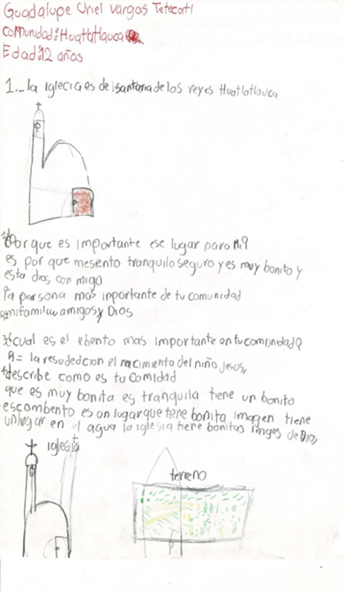 Guadalupe Uriel Vargas Tetecotl
comunidad: Huatlatlauca
Edad: 12 años
1._ la iglecia es de santa maria de los reyes Huatlatlauca
¿Por que es importante ese lugar para Mi?
es por que mesiento tranquilo seguro y es muy bonito y
esta dios con migo
la parsona mas importante de tu comunidad
mi familia amigos y Dios
¿cual es el ebento mas importante en tu comunidad?
R= la resudedcion el nacimento del niño Jesus,
describe como es tu Comidad
que es muy bonita es tranquila tiene un bonito
escombento es un lugar que tene bonita imagen tiene
un lugar en el agua la iglesia tiene bonitas de Dios
iglesia
terreno